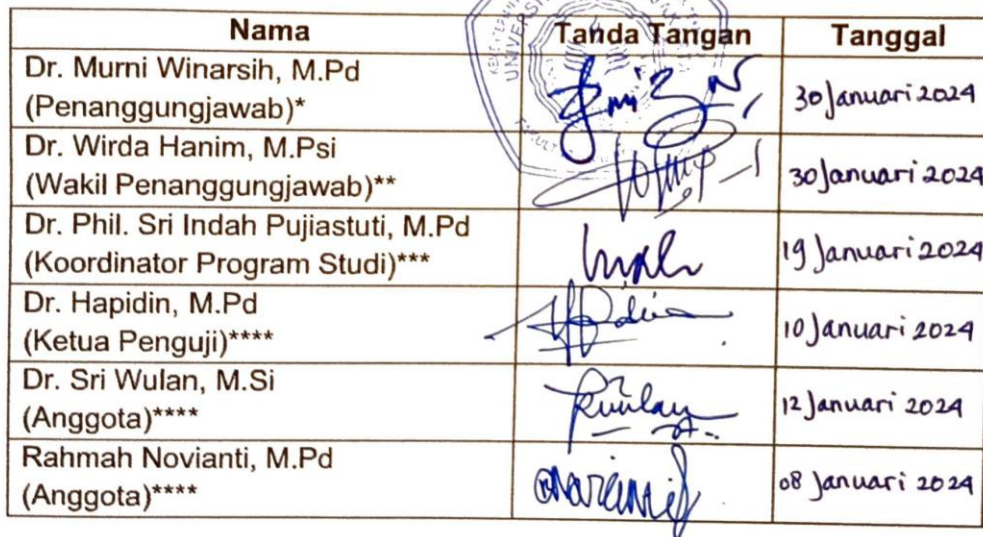 Nama Tanda Tangan Tanggal
Dr. Murni Winarsih, M.Pd
(Penanggungjawab)* 30 Januari 2024
Dr. Wirda Hanim, M.Psi
(Wakil Penanggungjawab)** 30 Januari 2024
Dr. Phil. Sri Indah Pujiastuti, M.Pd
(Koordinator Program Studi)*** 19 Januari 2024
Dr. Hapidin, M.Pd
(Ketua Penguji)**** 10 Januari 2024
Dr. Sri Wulan, M.Si
(Anggota)**** 12 Januari 2024
Rahmah Novianti, M.Pd
(Anggota)**** 08 Januari 2024